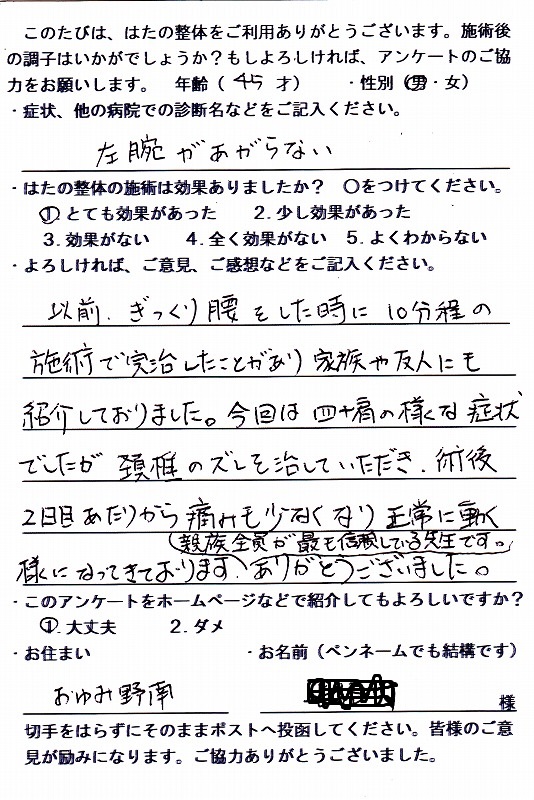 このたびは、はたの整体をご利用ありがとうございます。施術後
の調子はいかがでしょうか？もしよろしければ、アンケートのご協
力をお願いします。 年齢（ 45 才） ・性別（男・女）
・症状、他の病院での診断名などをご記入ください。
左腕があがらない
・はたの整体の施術は効果ありましたか？ ○をつけてください。
1. とても効果があった 2. 少し効果があった
3. 効果がない 4. 全く効果がない 5. よくわからない
・よろしければ、ご意見、ご感想などをご記入ください。
以前、ぎっくり腰をした時に10分程の
施術で完治したことがあり家族や友人にも
紹介しておりました。今回は四十肩の様な症状
でしたが頚椎のズレを治していただき、術後
2日目あたりから痛みも少なくなり正常に動く
親族全員が最も信頼している先生です。
様になってきております。ありがとうございました。
・このアンケートをホームページなどで紹介してもよろしいですか？
1. 大丈夫 2. ダメ
・お住まい ・お名前（ペンネームでも結構です）
おゆみ野南 様
切手をはらずにそのままポストへ投函してください。皆様のご意
見が励みになります。ご協力ありがとうございました。